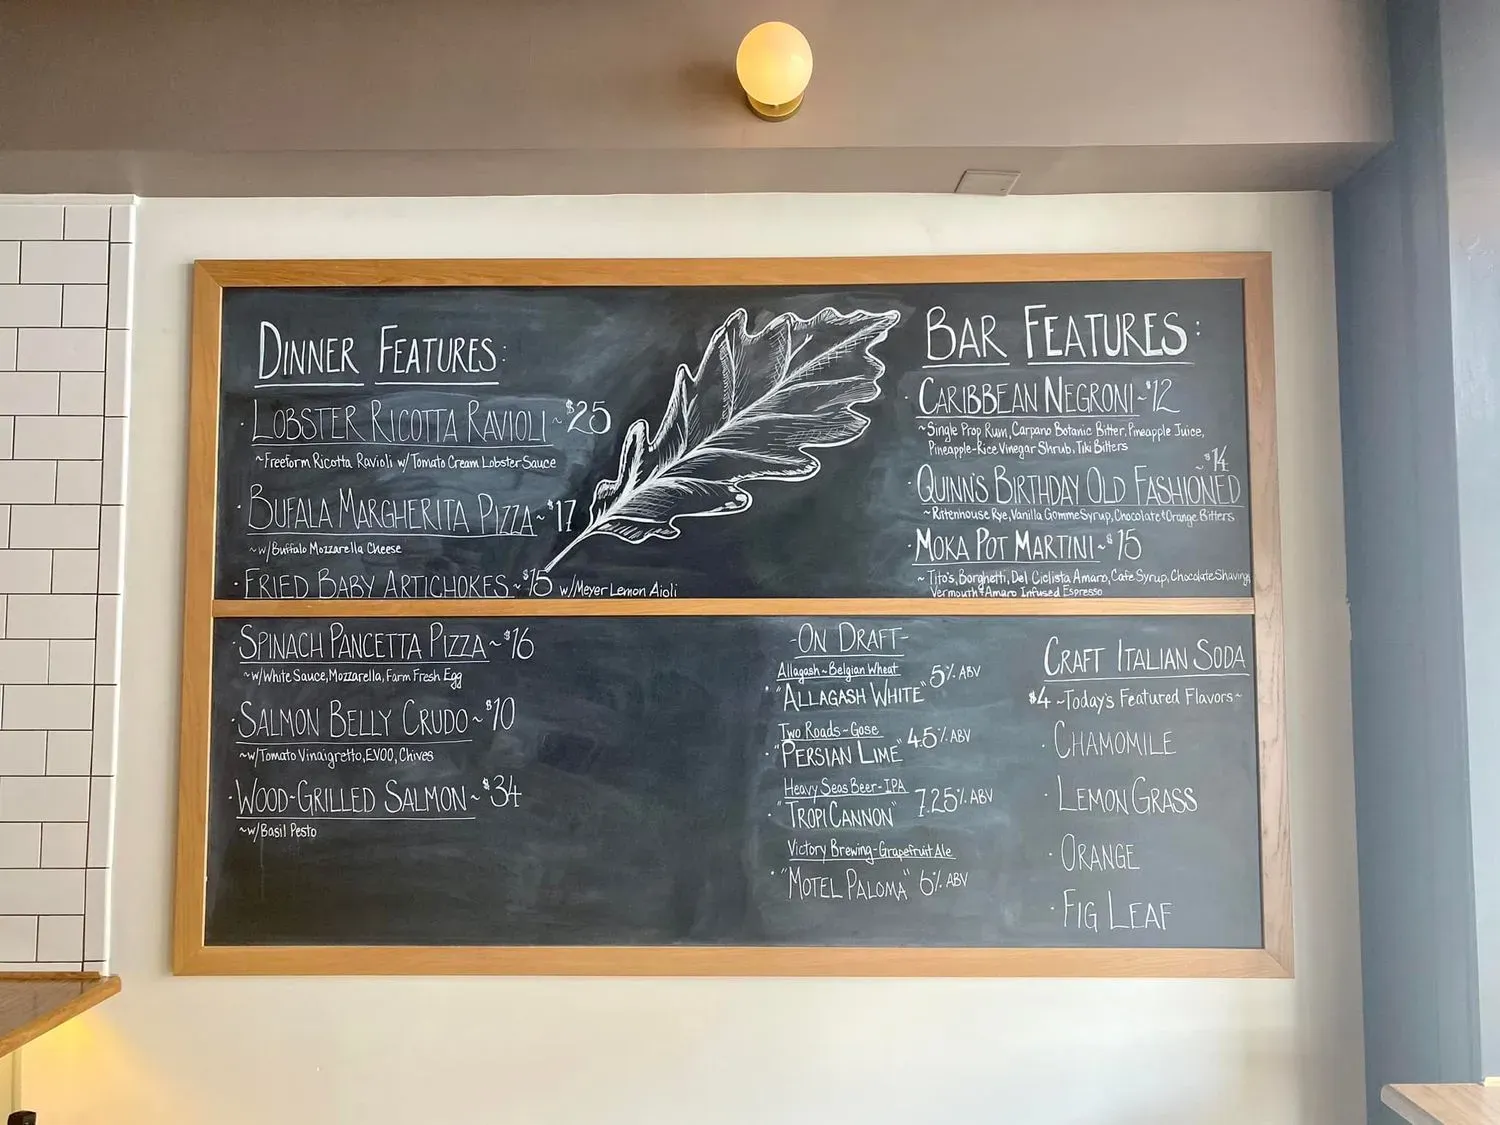 DINNER FEATURES:
· LOBSTER RICOTTA RAVIOLI ~ $25
~Freeform Ricotta Ravioli w/ Tomato Cream Lobster Sauce
· BUFALA MARGHERITA PIZZA ~ $17
~w/Buffalo Mozzarella Cheese
· FRIED BABY ARTICHOKES ~ $15 w/Meyer Lemon Aioli
· SPINACH PANCETTA PIZZA ~ $16
~w/White Sauce, Mozzarella, Farm Fresh Egg
· SALMON BELLY CRUDO ~ $10
~w/Tomato Vinaigretto, EVOO, Chives
· WOOD-GRILLED SALMON ~ $34
~w/Basil Pesto
BAR FEATURES:
· CARIBBEAN NEGRONI ~ $12
~Single Prop Rum, Carpano Botanic Bitter, Pineapple Juice,
Pineapple-Rice Vinegar Shrub, Tiki Bitters
~ $14
· QUINN'S BIRTHDAY OLD FASHIONED
~Rittenhouse Rye, Vanilla Gomme Syrup, Chocolate & Orange Bitters
· MOKA POT MARTINI ~ $15
~Tito's, Borghetti, Del Ciclista Amaro, Cafe Syrup, Chocolate Shavings
Vermouth & Amaro Infused Espresso
-ON DRAFT-
Allagash ~ Belgian Wheat
· "ALLAGASH WHITE" 5% ABV
Two Roads - Gose
· "PERSIAN LIME" 4.5% ABV
Heavy Seas Beer - IPA
· "TROPICANNON" 7.25% ABV
Victory Brewing - Grapefruit Ale
· "MOTEL PALOMA" 6% ABV
CRAFT ITALIAN SODA
$4 ~Today's Featured Flavors~
· CHAMOMILE
· LEMON GRASS
· ORANGE
· FIG LEAF